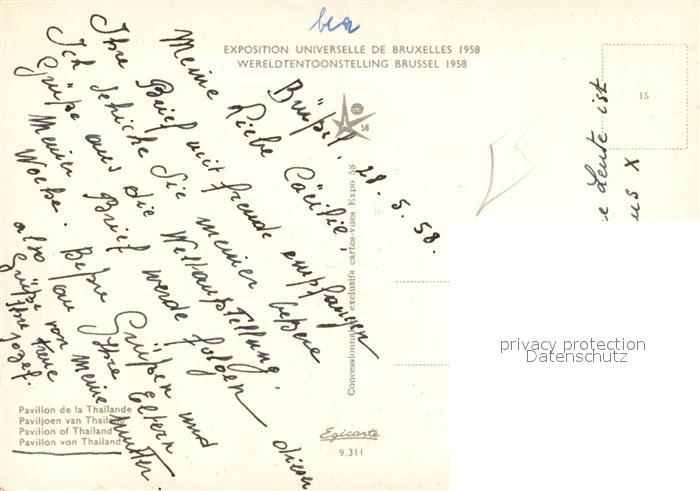 bea
EXPOSITION UNIVERSELLE DE BRUXELLES 1958
WERELDTENTOONSTELLING BRUSSEL 1958
15
58
Brüssel, 28.5.58.
Meine Liebe Cäcilie,
Ihre Brief mit freude empfangen
Ich schicke Sie meinen beßere
Grüße aus die Weltaustellung.
Meiner Brief werde folgen diesen
Woche. Beßre Grüßen und
also an Ihre Eltern
Grüße von meine Mutter.
Ihre treue
Jozef.
Leute ist
X
Concessionnaire exclusifs cartes-vues Expo 58
privacy protection
Datenschutz
Pavillon de la Thaïlande
Paviljoen van Thailand
Pavilion of Thailand
Pavillon von Thailand
Egicarte
9.311